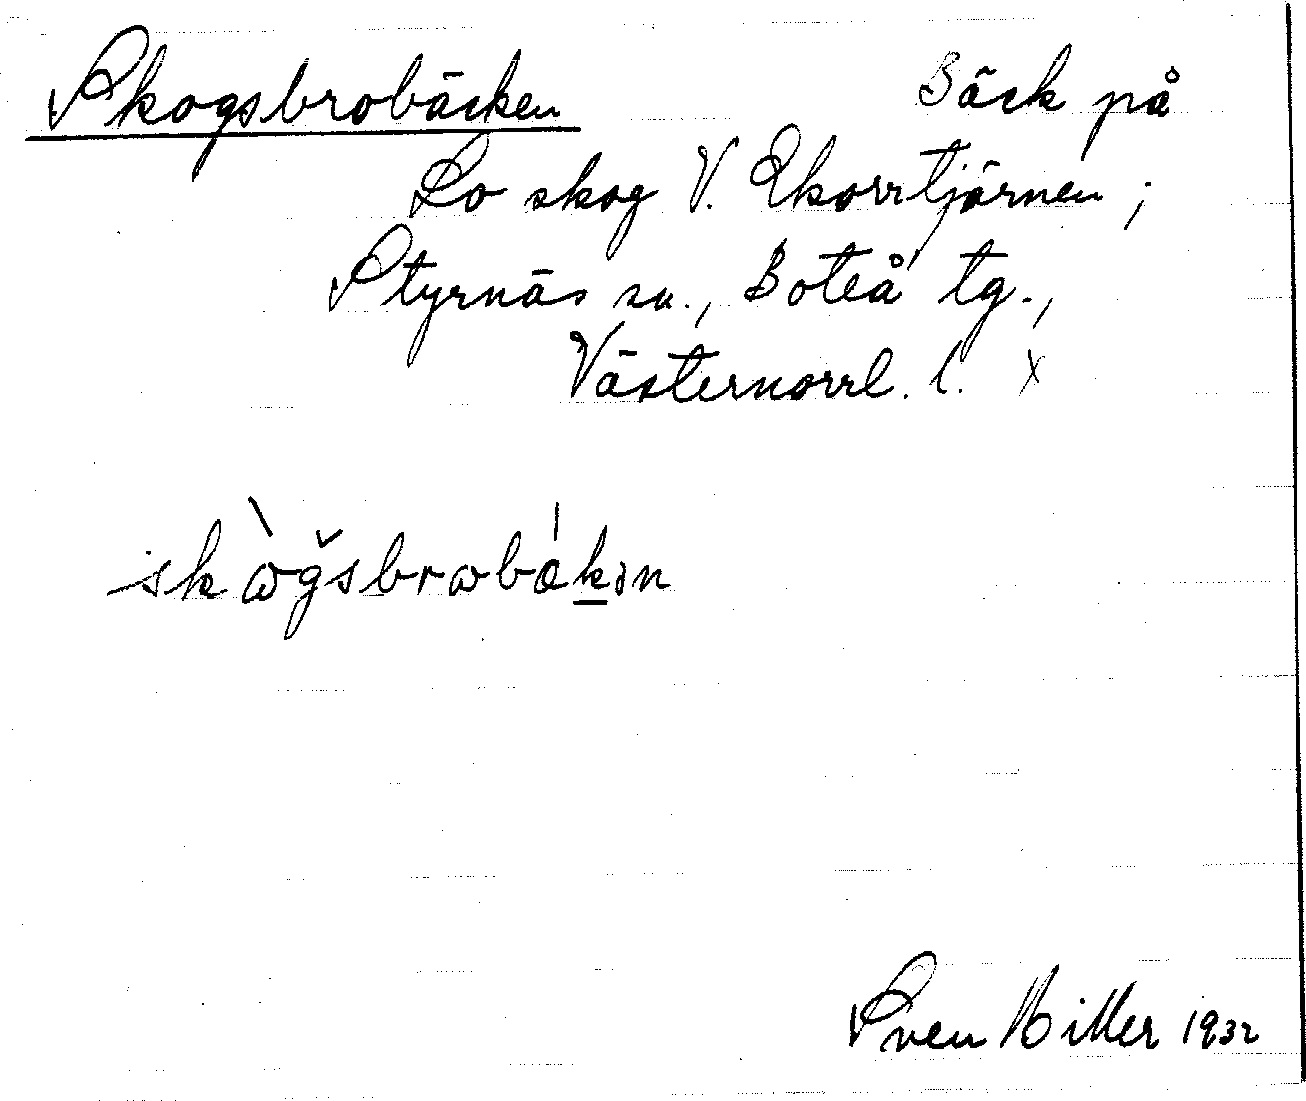 Skogsbrobäcken Bäck på
Lo skog V. Ekorrtjärnen ;
Styrnäs sn., Boteå tg.,
Västernorrl. l. x
Sven Hiller 1932